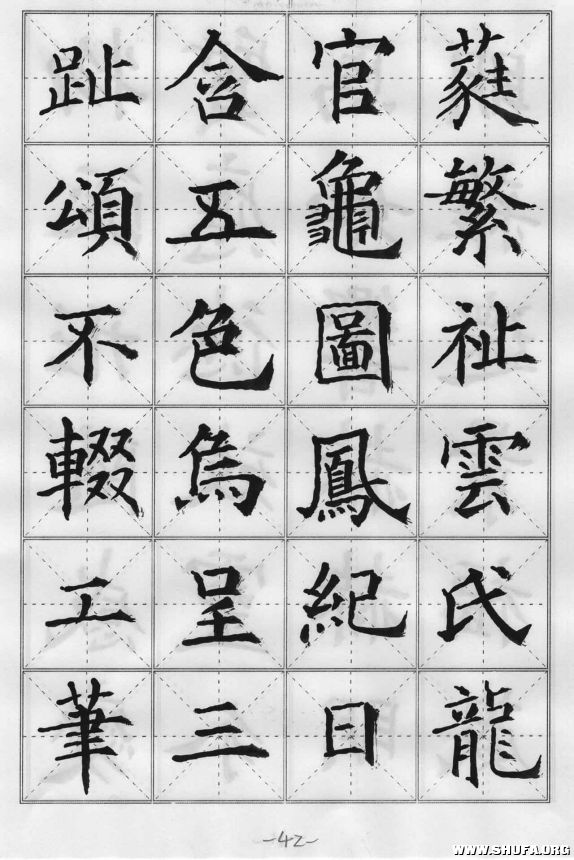 蕤繁祉雲氏龍
官龜圖鳳紀日
含五色烏呈三
趾頌不輟工筆
-42-
WWW.SHUFA.ORG